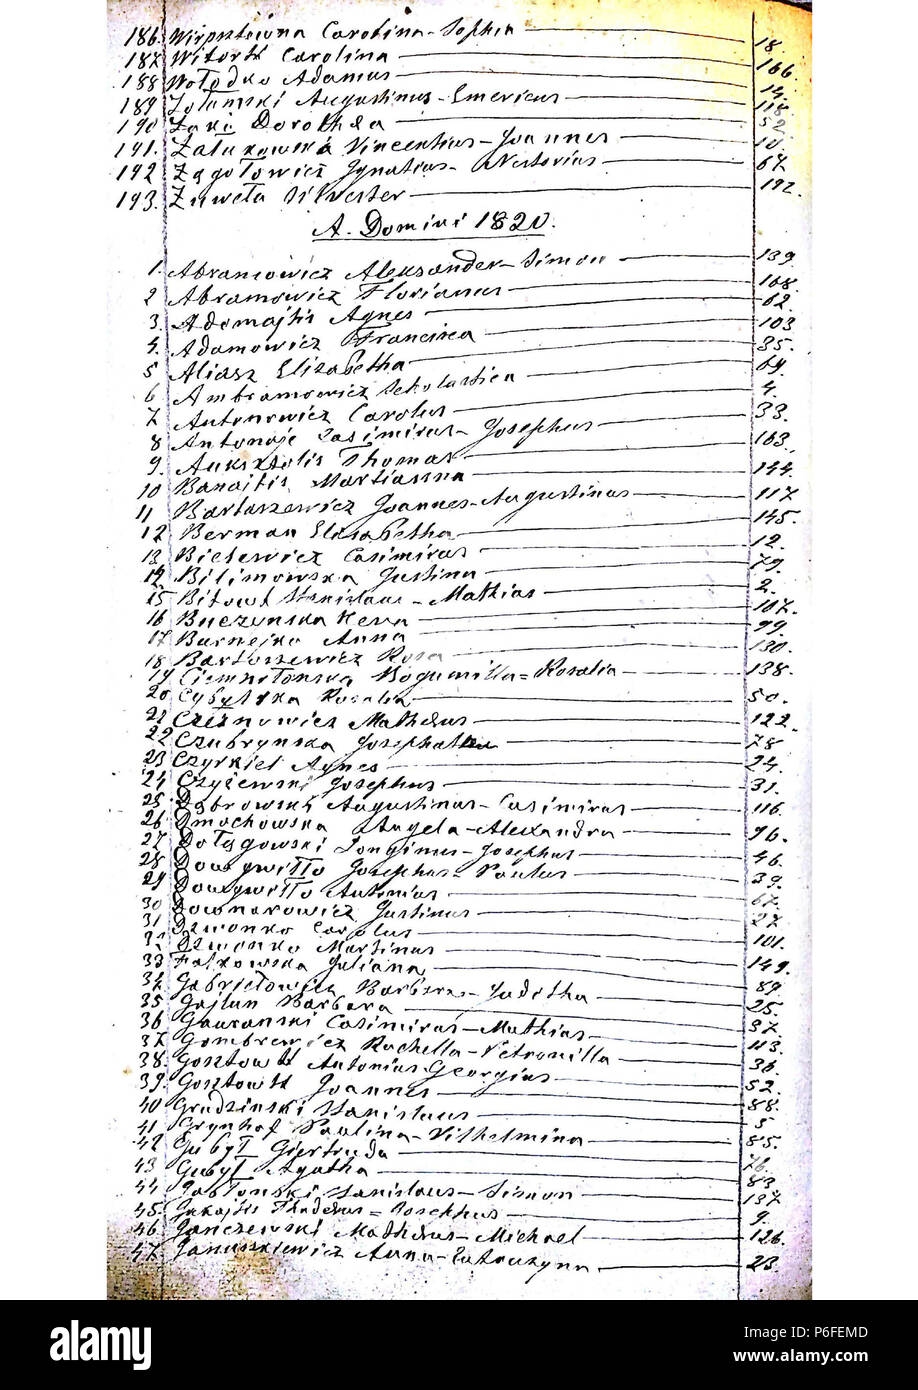 186. Wirpsztówna Carolina-Sophia 18.
187 Witortt Carolina 166.
188 Wołodko Adamus 14.
189 Augustinus-Emericus 118
190 Żaki Dorothea 52
191. Załukowski Vincentius-Joannes 10.
192 Zągołowicz Ignatius-Nestorius 67.
193. Żuweła Silvester 192.
A. Domini 1820.
1. Abramowicz Aleksander-Simon 139.
2 Abramowicz Florianus 168.
3 Adomajtis Agnes 62.
4. Adamowicz Francisca 103
5 Aliasz Elizabetha 85.
6 Ambramowicz Scholastica 69.
7 Antonowicz Carolus 4.
8 Antonaje Casimirus-Josephus 33.
9. Auksztolis Thomas 163.
10 Banajtis Martianna 144.
11 Bartaszewicz Joannes-Augustinus 117
12 Berman Elisabetha 145.
13 Bielewicz Casimirus 12.
14. Bilimowska Justina 79.
15 Bitowt Stanislaus-Mathias 2.
16 Buczynska Heva 107.
17 Burnejko Anna 99.
18 Bartoszewicz Rosa 130.
19 Bogumilla=Rosalia 138.
20 Rosalia 50.
21 Czesnowicz Matheus 122.
22 Czubrynska Josephatha 78
23 Czyrkiel Agnes 24.
24 Czyżewski Josephus 31.
25. Dąbrowski Augustinus-Casimirus 116.
26 Dmochowska Angela-Alexandra 96.
27 Dołęgowski Longinus-Josephus 46.
28 Dowgwiłło Josephus-Paulus 39.
29 Dowgwiłło Antonius 67.
30 Downarowicz Justinus 27
31 Dzwonko Carolus 101.
Dzwonko Martinus 149.
33 Falkowska Juliana 89.
34 Gabriełowicz Barbara-Juditha 25.
35 Gajlun Barbara 37.
36 Gawranski Casimirus-Mathias 113.
37 Gombrewicz Rachella-Petronilla 36.
38. Gosztowtt Antonius Georgius 52.
39. Gosztowtt Joannes 88.
40 Grudzinski Stanislaus 5
41 Grynhof Paulina-Vilhelmina 85.
42 Gubył Giertruda 76.
43 Gubył Agatha 83
44 Jabłonski Stanislaus-Simon 137
45. Jakajtis Thadeus=Josephus 9.
46 Janczewski Matheus-Michael 126.
47. Januszkiewicz Anna-Catharzyna 23.
alamy
alamy
Image ID: P6FEMD
www.alamy.com